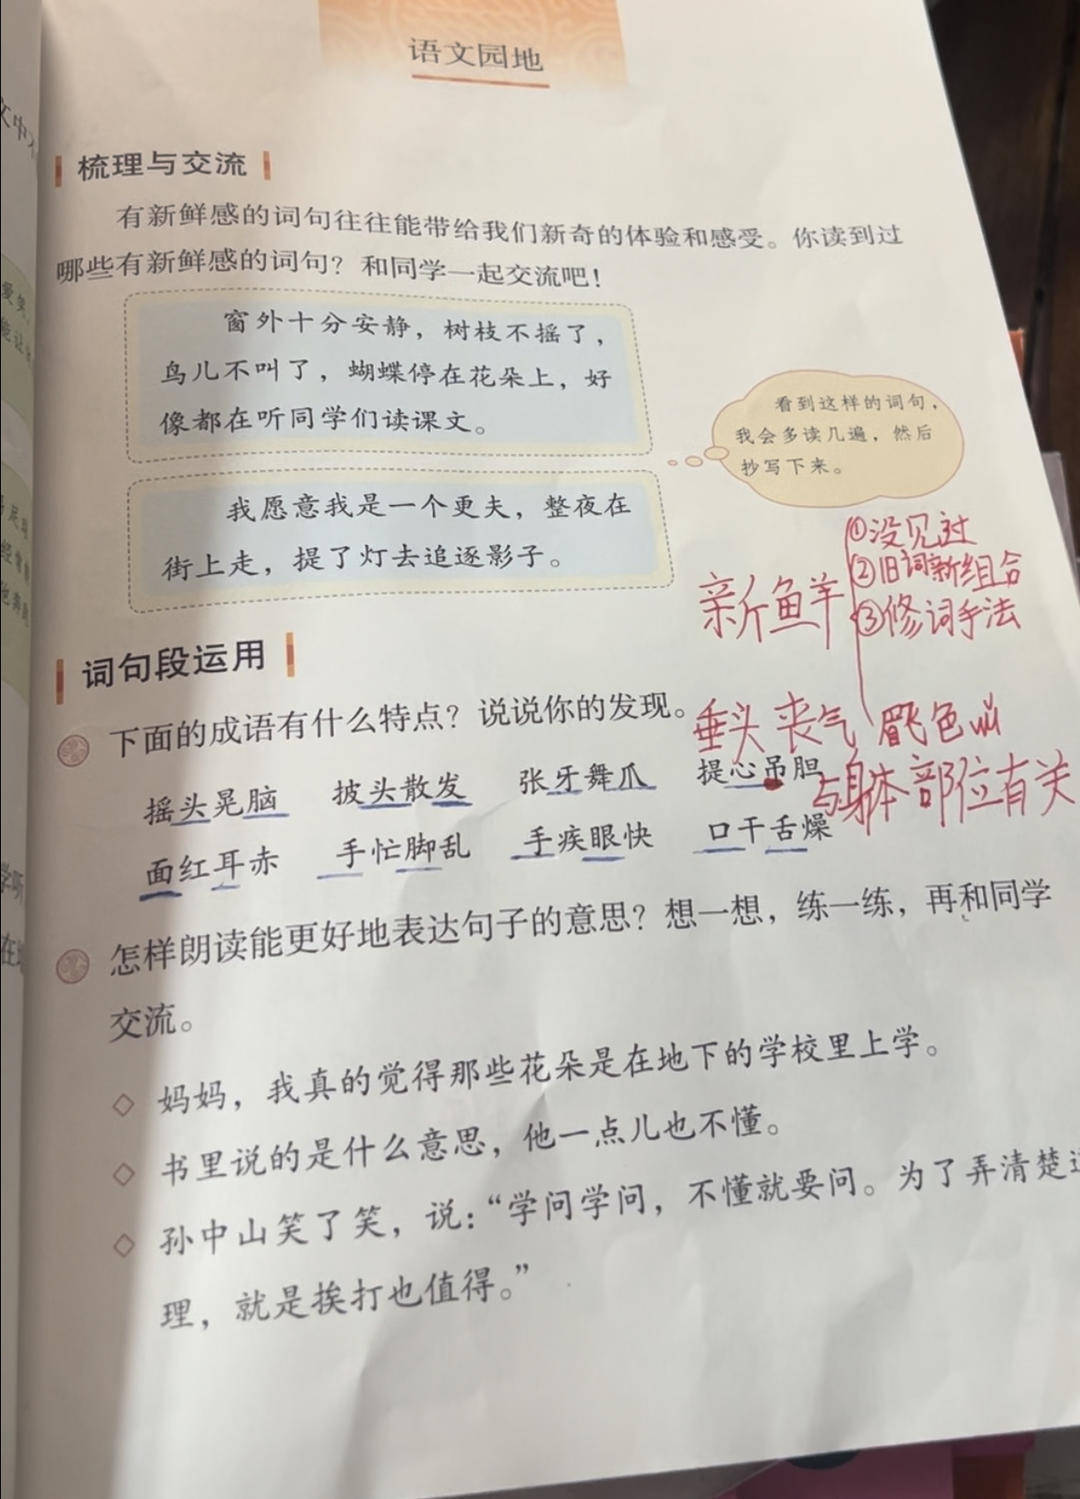 语文园地
梳理与交流
有新鲜感的词句往往能带给我们新奇的体验和感受。你读到过
哪些有新鲜感的词句？和同学一起交流吧！
窗外十分安静，树枝不摇了，
鸟儿不叫了，蝴蝶停在花朵上，好
像都在听同学们读课文。
看到这样的词句，
我会多读几遍，然后
抄写下来。
我愿意我是一个更夫，整夜在
街上走，提了灯去追逐影子。
新鲜
①没见过
②旧词新组合
③修词手法
词句段运用
下面的成语有什么特点？说说你的发现。
垂头丧气
与身体部位有关
摇头晃脑 披头散发 张牙舞爪 提心吊胆
面红耳赤 手忙脚乱 手疾眼快 口干舌燥
怎样朗读能更好地表达句子的意思？想一想，练一练，再和同学
交流。
◇ 妈妈，我真的觉得那些花朵是在地下的学校里上学。
◇ 书里说的是什么意思，他一点儿也不懂。
◇ 孙中山笑了笑，说：“学问学问，不懂就要问。为了弄清楚
理，就是挨打也值得。”